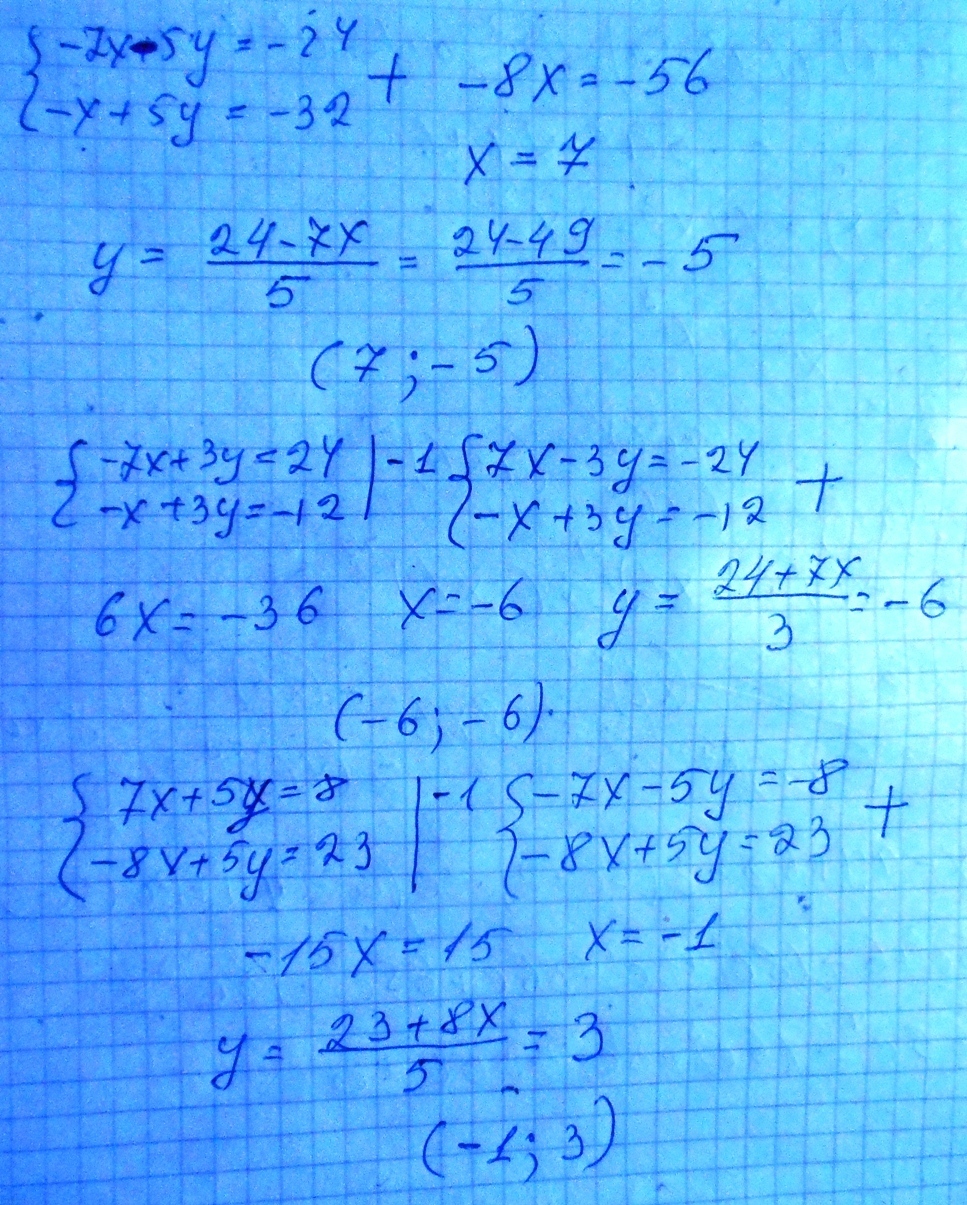 {-7x-5y = -24
{-x+5y = -32 + -8x = -56
x = 7
y = (24-7x)/5 = (24-49)/5 = -5
(7; -5)
{-7x+3y=24 |-1 {7x-3y=-24
{-x+3y=-12 | {-x+3y=-12 +
6x=-36 x=-6 y = (24+7x)/3 = -6
(-6; -6)
{7x+5y=8 |-1 {-7x-5y=-8
{-8x+5y=23 | {-8x+5y=23 +
-15x=15 x=-1
y = (23+8x)/5 = 3
(-1; 3)